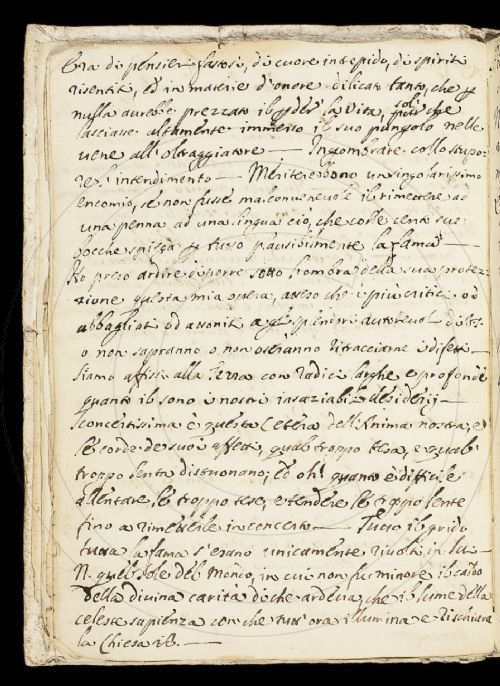 Era di pensieri fastosi, di cuore intrepido, di spiriti
risentiti, ed in materie d'onore dilicato tanto, che p
nulla aurebbe prezzato il perder la vita, sol pur che
lasciasse altamente immerso il suo pungolo nelle
uene all'oltraggiatore — Ingombrare collo stupo-
re l'intendimento — Meriterebbono un singolarissimo
encomio, se non fusse malconueneuole il rimettere ad
una penna ad una lingua ciò, che colle cento sue
bocche spiega p tutto plausibilmente la fama —
Ho preso ardire di porre sotto l'ombra della sua protez-
zione questa mia opera, atteso che i più critici od
abbagliati od attoniti a gli splendori autoreuoli
o non sapranno o non oseranno ritracciarne i difetti —
Siamo affissi alla Terra con radici larghe e profonde
quanto il sono i nostri insaziabili desiderj —
Sconcertissima è questa Cetera dell'Anima nostra, e
le corde de suoi affetti, qual troppo tesa, e qual
troppo lenta dissuonano; ed oh! quanto è difficile
allentare le troppo tese, e tendere le troppo lente
fino a rimetterle in concerto — Tutto il grido
tutta la fama s'erano unicamente riuolti in
N. quel Sole del Mondo, in cui non fu minore il caldo
della diuina carità di che ardeua, che il lume della
celeste sapienza con che tutt'ora illumina e rischiara
la Chiesa